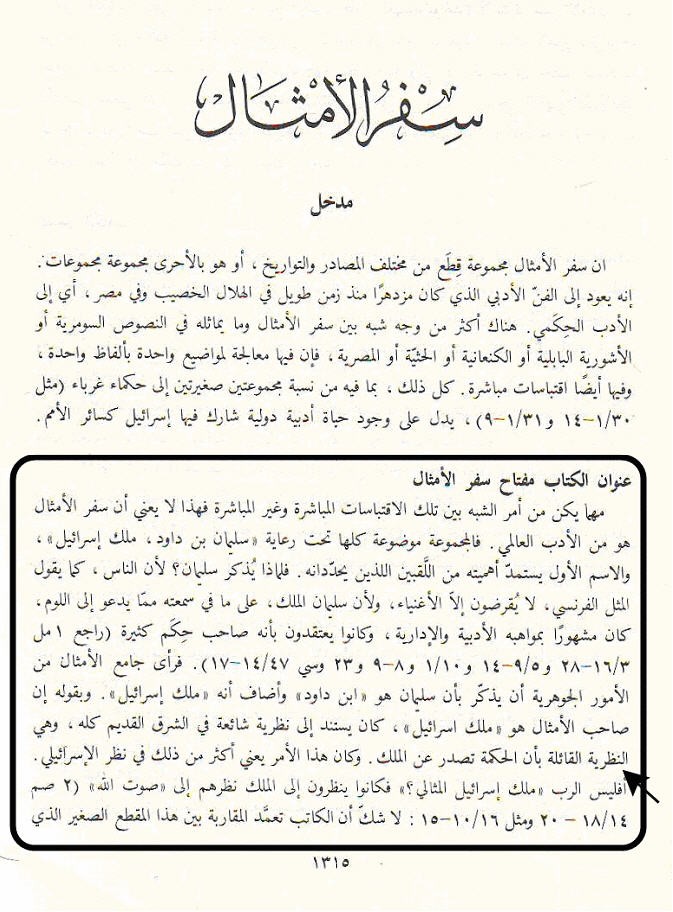 سِفْرُ الأَمْثَال
مدخل
ان سفر الأمثال مجموعة قِطَع من مختلف المصادر والتواريخ ، أو هو بالأحرى مجموعة مجموعات .
إنه يعود إلى الفنّ الأدبي الذي كان مزدهرًا منذ زمن طويل في الهلال الخصيب وفي مصر ، أي إلى
الأدب الحِكَمي . هناك أكثر من وجه شبه بين سفر الأمثال وما يماثله في النصوص السومرية أو
الأشورية البابلية أو الكنعانية أو الحثيّة أو المصرية ، فإن فيها معالجة لمواضيع واحدة بألفاظ واحدة ،
وفيها أيضًا اقتباسات مباشرة . كل ذلك ، بما فيه من نسبة مجموعتين صغيرتين إلى حكماء غرباء (مثل
٣٠/١-١٤ و ٣١/١-٩) ، يدل على وجود حياة أدبية دولية شارك فيها إسرائيل كسائر الأمم .
عنوان الكتاب مفتاح سفر الأمثال
مهما يكن من أمر الشبه بين تلك الاقتباسات المباشرة وغير المباشرة فهذا لا يعني أن سفر الأمثال
هو من الأدب العالمي . فالمجموعة موضوعة كلها تحت رعاية «سليمان بن داود ، ملك إسرائيل» ،
والاسم الأول يستمدّ أهميته من اللَّقبين اللذين يحدّدانه . فلماذا يُذكر سليمان؟ لأن الناس ، كما يقول
المثل الفرنسي ، لا يُقرضون إلاّ الأغنياء ، ولأن سليمان الملك ، على ما في سمعته ممّا يدعو إلى اللوم ،
كان مشهورًا بمواهبه الأدبية والإدارية ، وكانوا يعتقدون بأنه صاحب حِكَم كثيرة (راجع ١ مل
٣/١٦-٢٨ و ٥/٩-١٤ و ١٠/١ و ٨-٩ و ٢٣ وسي ٤٧/١٤-١٧) . فرأى جامع الأمثال من
الأمور الجوهرية أن يذكّر بأن سليمان هو «ابن داود» وأضاف أنه «ملك إسرائيل» . وبقوله إن
صاحب الأمثال هو «ملك اسرائيل» ، كان يستند إلى نظرية شائعة في الشرق القديم كله ، وهي
النظرية القائلة بأن الحكمة تصدر عن الملك . وكان هذا الأمر يعني أكثر من ذلك في نظر الإسرائيلي .
أفليس الرب «ملك إسرائيل المثالي؟» فكانوا ينظرون إلى الملك نظرهم إلى «صوت الله» (٢ صم
١٤/١٨ - ٢٠ ومثل ١٦/١٠-١٥ : لا شكّ أن الكاتب تعمَّد المقاربة بين هذا المقطع الصغير الذي
١٣١٥